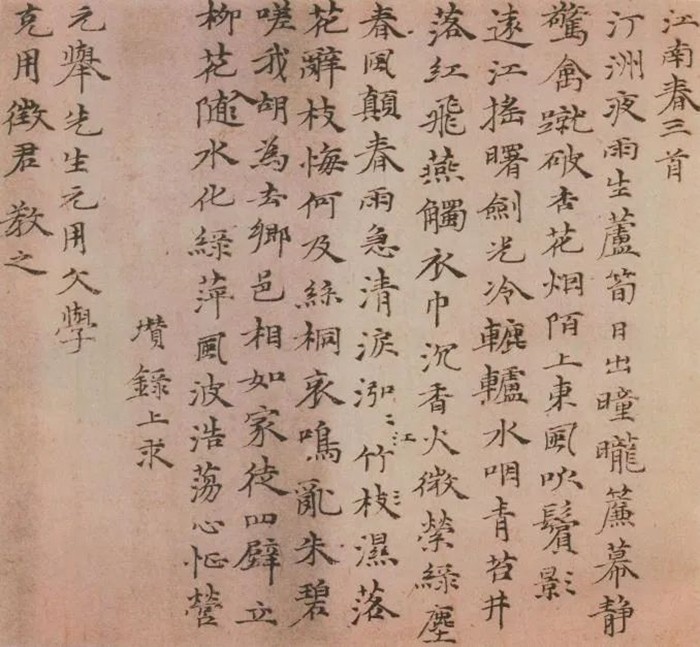 江南春三首
汀洲夜雨生蘆筍日出曈曨簾幕静
驚禽蹴破杏花烟陌上東風吹鬢影
遠江摇曙劍光冷轆轤水咽青苔井
落紅飛燕觸衣巾沉香火微縈緑塵
春風顛春雨急清淚泓〻江竹枝濕落
花辭枝悔何及絲桐哀鳴亂朱碧
嗟我胡為去鄉邑相如家徒四壁立
柳花随水化緑萍風波浩蕩心怔營
瓚錄上求
元舉先生元用文學
克用徵君 教之